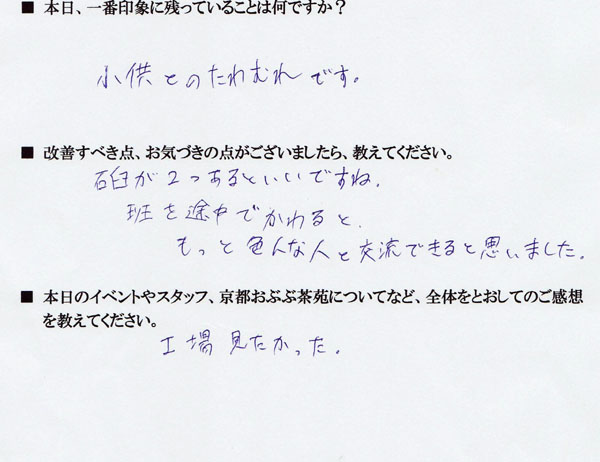 ■ 本日、一番印象に残っていることは何ですか？
小供とのたわむれです。
■ 改善すべき点、お気づきの点がございましたら、教えてください。
石臼が2つあるといいですね.
班を途中でかわると、
もっと色んな人と交流できると思いました.
■ 本日のイベントやスタッフ、京都おぶぶ茶苑についてなど、全体をとおしてのご感想
を教えてください。
工場見たかった.